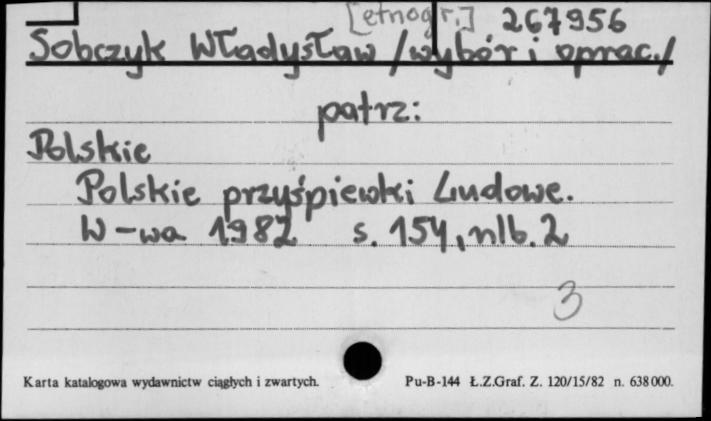 [etnogr.] 267956
Sobczyk Władysław /wybór i oprac./
patrz:
Polskie
Polskie przyśpiewki Ludowe.
W-wa 1982 s. 154, nlb. 2
3
Karta katalogowa wydawnictw ciągłych i zwartych. Pu-B-144 Ł.Z.Graf. Z. 120/15/82 n. 638000.